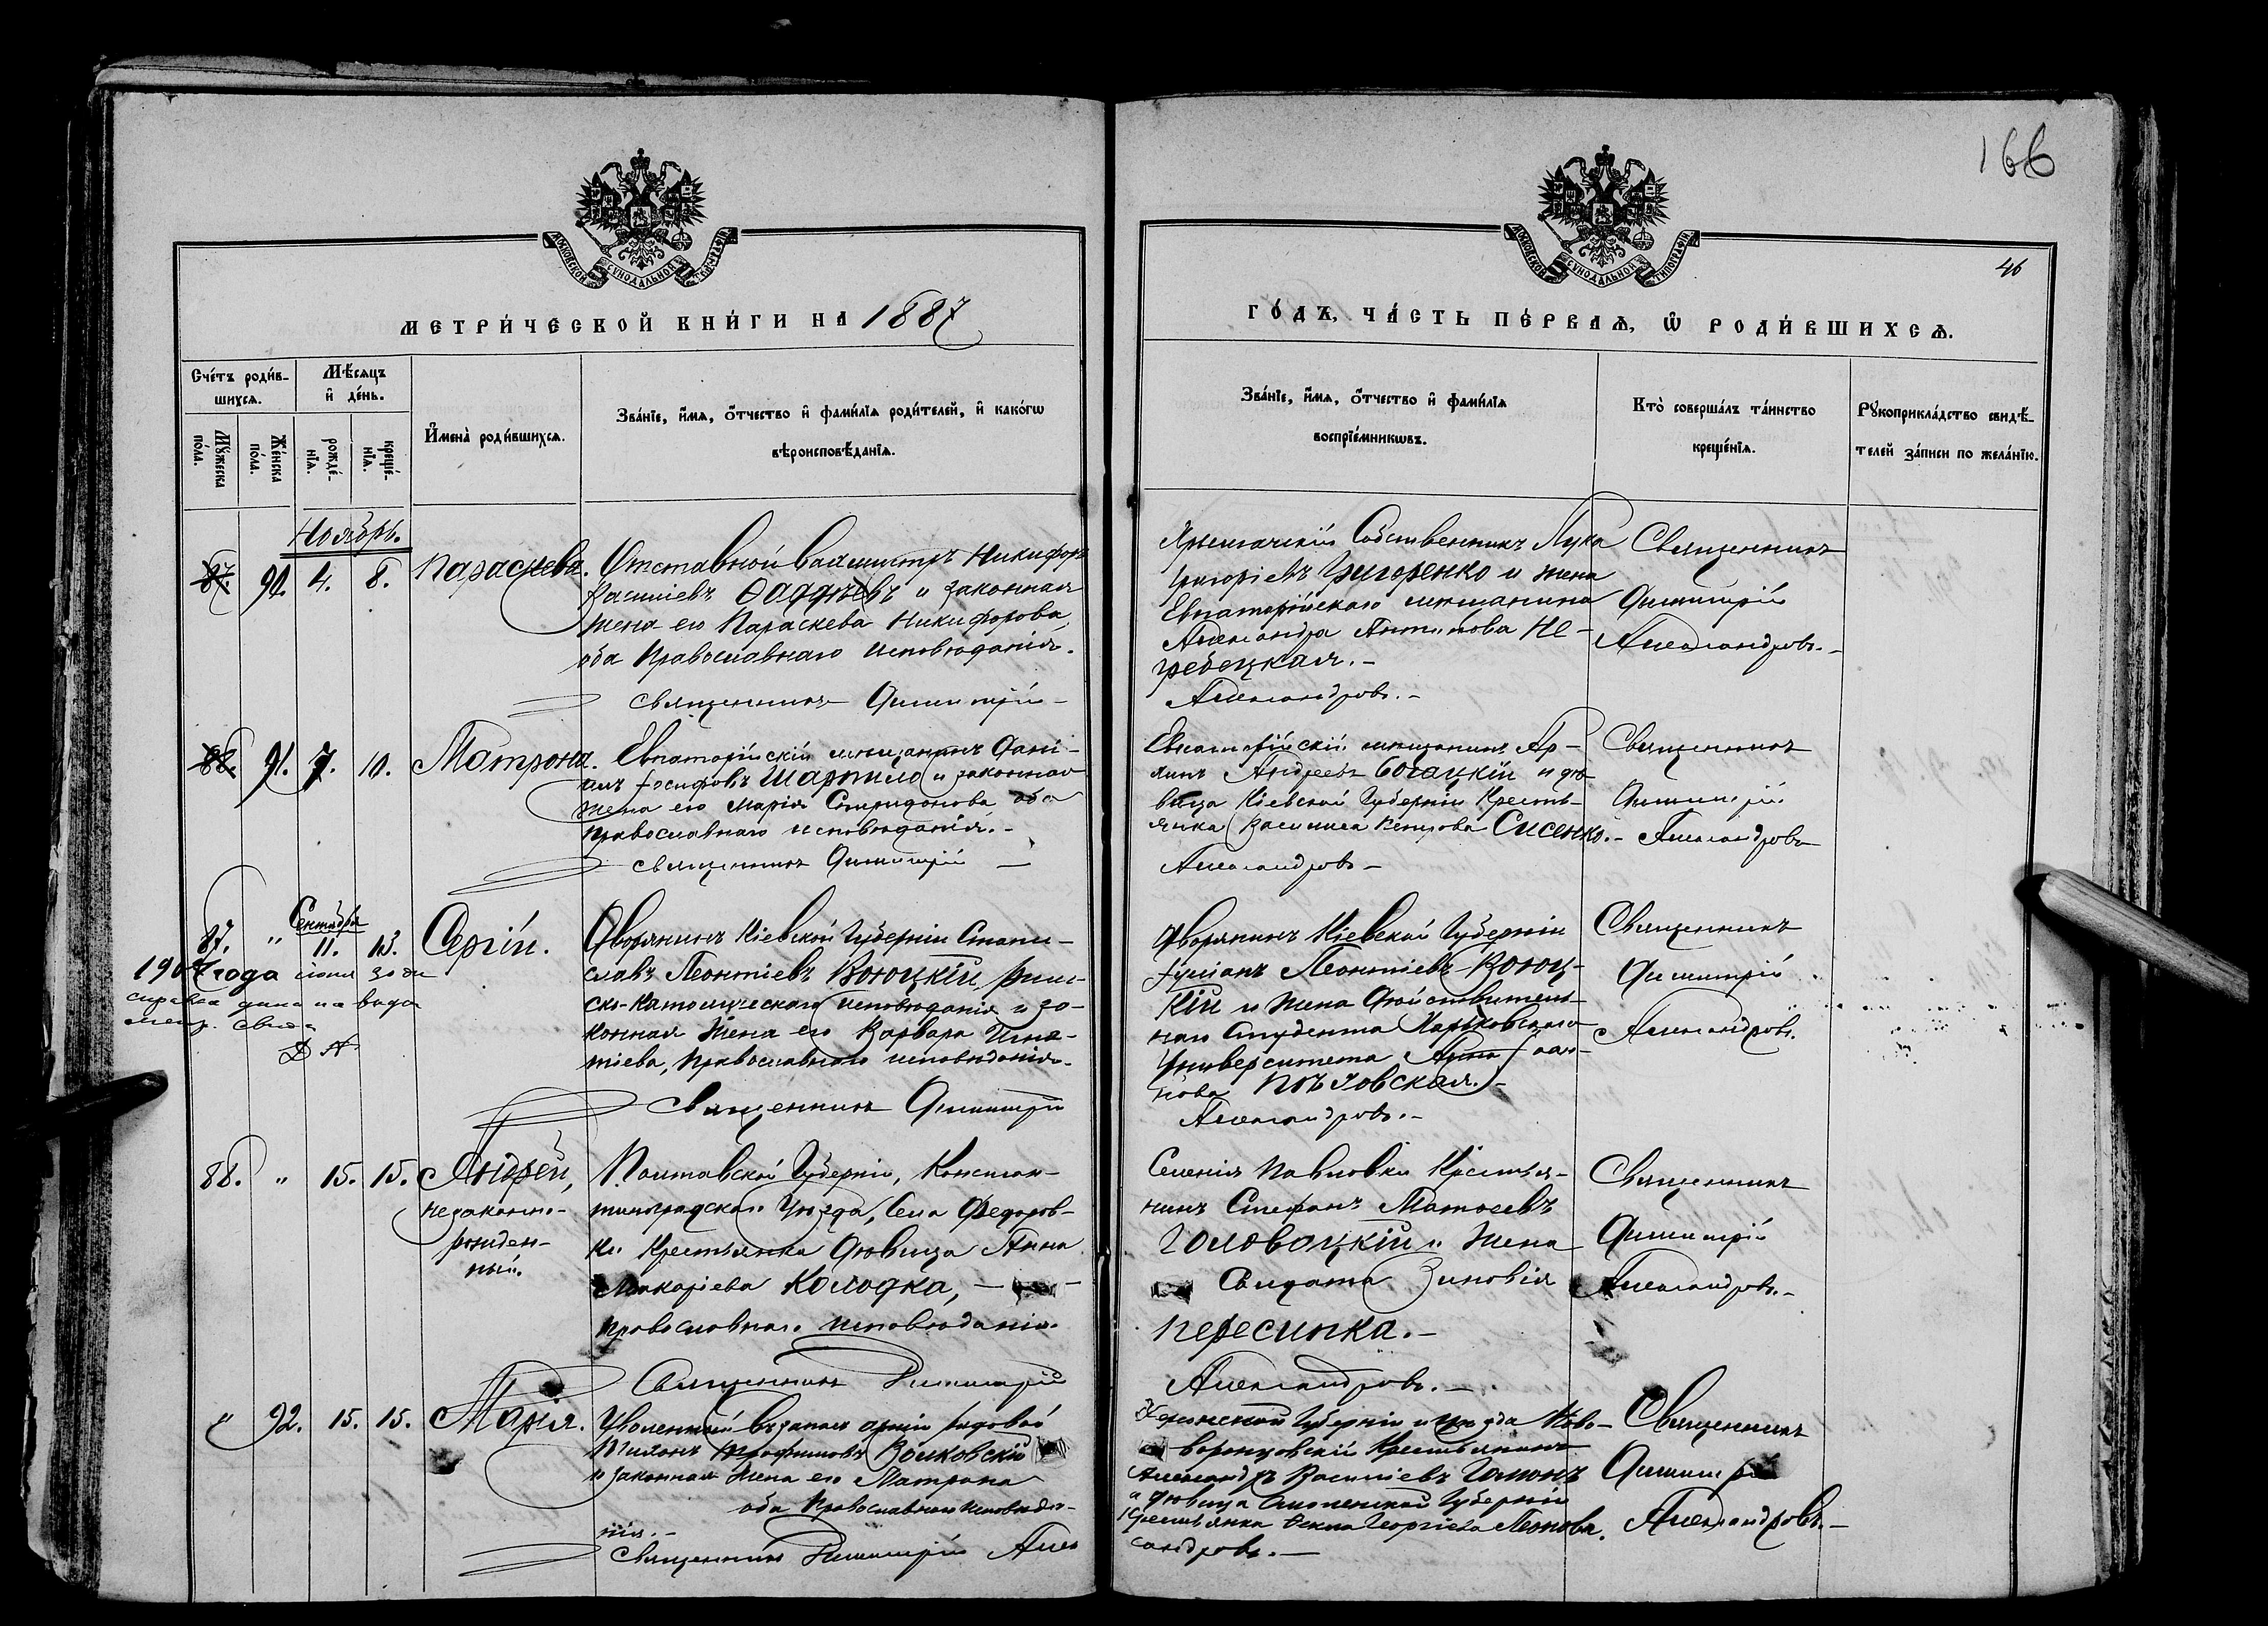 166
МОСКОВСКОЙ СѴНОДАЛЬНОЙ ТИПОГРАФІИ
МОСКОВСКОЙ СѴНОДАЛЬНОЙ ТИПОГРАФІИ
46
МЕТРИ́ЧЕСКОЙ КНИ́ГИ НА 1887
ГО́ДЪ, ЧА́СТЬ ПЕ́РВАѦ, Ѽ РОДИ́ВШИХСѦ.
Сче́тъ роди́в-
шихсѧ.
Мѣ́сѧцъ
и҆ де́нь.
Мꙋ́жеска по́ла.
Же́нска по́ла.
рожде́-нїѧ.
креще́-нїѧ.
И҆мена̀ роди́вшихсѧ.
Зва́нїе, и҆́мѧ, ѻ҆́тчество и҆ фами́лїѧ роди́телей, и҆ како́гѡ
вѣроисповѣ́данїѧ.
Зва́нїе, и҆́мѧ, ѻ҆́тчество и҆ фами́лїѧ
воспрїе́мникѡвъ.
Кто̀ соверша́лъ та́инство
креще́нїѧ.
Рꙋкоприкла́дство свидѣ́-
телей за́писи по жела́нїю.
Ноябрь.
87. 90. 4. 8. Параскева.
Отставной Вахмистръ Никифоръ
Василіевъ Фаддѣевъ и законная
жена его Параскева Никифорова,
оба Православнаго исповѣданія.
Священникъ Димитрій
Собственникъ Лука
Григоріевъ Григоренко и жена
Евпаторійскаго мѣщанина
Александра Антипова Не-
гребецкая.
Александровъ.
Священникъ
Димитрій
Александровъ.
88. 91. 7. 10. Матрона.
Евпаторійскій мѣщанинъ Дані-
илъ Іосифовъ Шаршило и законная
жена его Марія Спиридонова оба
православнаго исповѣданія.
Священникъ Димитрій
Евпаторійскій мѣщанинъ
Андреевъ Богацкій и дѣ-
вица Кіевской Губерніи Кресть-
янка Василиса Петрова Сисенко.
Александровъ
Священникъ
Димитрій
Александровъ
87. " Сентября 11. 13. Сергій.
1904 года іюня 30 дн
справка дана на выда
метр. свид.
Д А
Дворянинъ Кіевской Губерніи Стани-
славъ Леонтіевъ Воюцкій, Рим-
ско-Католическаго исповѣданія и за-
конная жена его Варвара Игна-
тіева, Православнаго исповѣданія.
Священникъ Димитрій
Дворянинъ Кіевской Губерніи
Іуліанъ Леонтіевъ Воюц-
кій и жена Дѣйствитель-
наго Студента Харьковскаго
Университета Анна Іоан-
нова
Александровъ.
Священникъ
Димитрій
Александровъ.
88. " 15. 15. Андрей,
незаконно-
рожден-
ный.
Полтавской Губерніи, Констан-
тиноградскаго Уѣзда, Села Федоров-
ки Крестьянка Дѣвица Анна
Макаріева Колодка,
православнаго исповѣданія.
Священникъ Димитрій
Селенія Павловки Крестья-
нинъ Стефанъ Матѳеевъ
Головацкій и жена
Солдата Зиновія
Пересипка.
Александровъ.
Священникъ
Димитрій
Александровъ.
" 92. 15. 15. Марія.
Уволенный въ запасъ арміи рядовой
Филонъ Трофимовъ Волковскій
и законная жена его Матрона
оба Православнаго исповѣда-
нія.
Священникъ Димитрій Алек
Херсонской Губерніи и уѣзда Ново-
воронцовскій Крестьянинъ
Александръ Василіевъ Галонъ
и дѣвица Смоленской Губерніи
Крестьянка Ѳекла Георгіева Леонова.
сандровъ.
Священникъ
Димитрій
Александровъ.